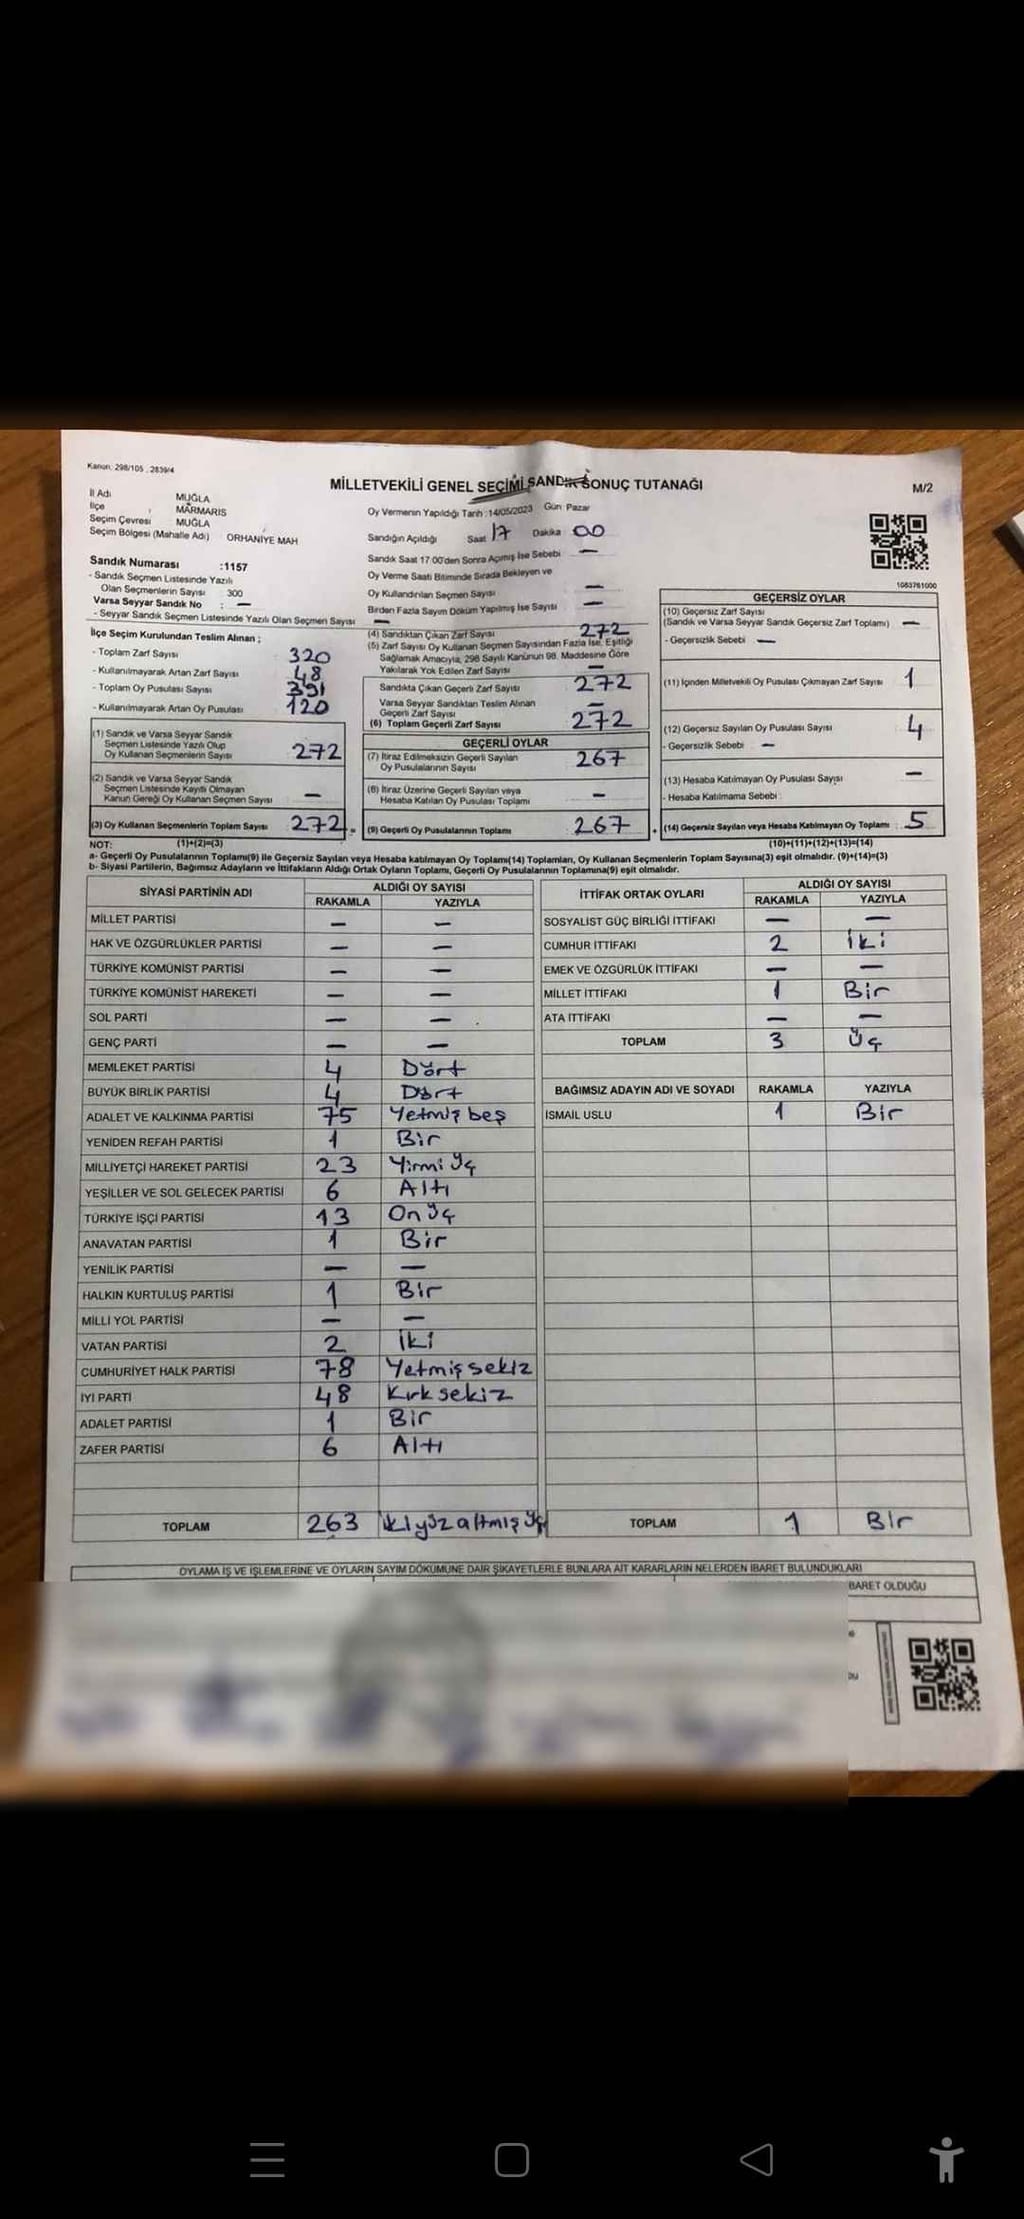 Kanun: 298/105 , 2839/4
MİLLETVEKİLİ GENEL SEÇİMİ SANDIK SONUÇ TUTANAĞI
M/2
İl Adı MUĞLA
İlçe , MARMARIS
Seçim Çevresi MUĞLA
Seçim Bölgesi (Mahalle Adı) ORHANİYE MAH
Oy Vermenin Yapıldığı Tarih :14/05/2023 Gün: Pazar
Sandığın Açıldığı Saat 17 Dakika 00
Sandık Saat 17:00'den Sonra Açmış İse Sebebi —
Oy Verme Saati Bitiminde Sırada Bekleyen ve
Oy Kullandırılan Seçmen Sayısı —
Birden Fazla Sayım Döküm Yapılmış İse Sayısı —
1083761000
Sandık Numarası :1157
- Sandık Seçmen Listesinde Yazılı
Olan Seçmenlerin Sayısı : 300
Varsa Seyyar Sandık No : —
- Seyyar Sandık Seçmen Listesinde Yazılı Olan Seçmen Sayısı —
İlçe Seçim Kurulundan Teslim Alınan ;
- Toplam Zarf Sayısı 320
- Kullanılmayarak Artan Zarf Sayısı 48
- Toplam Oy Pusulası Sayısı 391
- Kullanılmayarak Artan Oy Pusulası 120
(1) Sandık ve Varsa Seyyar Sandık
Seçmen Listesinde Yazılı Olup
Oy Kullanan Seçmenlerin Sayısı 272
(2) Sandık ve Varsa Seyyar Sandık
Seçmen Listesinde Kayıtlı Olmayan
Kanun Gereği Oy Kullanan Seçmen Sayısı —
(3) Oy Kullanan Seçmenlerin Toplam Sayısı 272
(4) Sandıktan Çıkan Zarf Sayısı 272
(5) Zarf Sayısı Oy Kullanan Seçmen Sayısından Fazla İse, Eşitliği
Sağlamak Amacıyla, 298 Sayılı Kanunun 98. Maddesine Göre
Yakılarak Yok Edilen Zarf Sayısı —
Sandıkta Çıkan Geçerli Zarf Sayısı 272
Varsa Seyyar Sandıktan Teslim Alınan
Geçerli Zarf Sayısı —
(6) Toplam Geçerli Zarf Sayısı 272
GEÇERLİ OYLAR
(7) İtiraz Edilmeksizin Geçerli Sayılan
Oy Pusulalarının Sayısı 267
(8) İtiraz Üzerine Geçerli Sayılan veya
Hesaba Katılan Oy Pusulası Toplamı —
(9) Geçerli Oy Pusulalarının Toplamı 267
GEÇERSİZ OYLAR
(10) Geçersiz Zarf Sayısı
(Sandık ve Varsa Seyyar Sandık Geçersiz Zarf Toplamı) —
- Geçersizlik Sebebi —
(11) İçinden Milletvekili Oy Pusulası Çıkmayan Zarf Sayısı 1
(12) Geçersiz Sayılan Oy Pusulası Sayısı 4
- Geçersizlik Sebebi —
(13) Hesaba Katılmayan Oy Pusulası Sayısı —
- Hesaba Katılmama Sebebi :
(14) Geçersiz Sayılan veya Hesaba Katılmayan Oy Toplamı 5
NOT: (1)+(2)=(3) (10)+(11)+(12)+(13)=(14)
a- Geçerli Oy Pusulalarının Toplamı(9) ile Geçersiz Sayılan veya Hesaba katılmayan Oy Toplamı(14) Toplamları, Oy Kullanan Seçmenlerin Toplam Sayısına(3) eşit olmalıdır. (9)+(14)=(3)
b- Siyasi Partilerin, Bağımsız Adayların ve İttifakların Aldığı Ortak Oyların Toplamı, Geçerli Oy Pusulalarının Toplamına(9) eşit olmalıdır.
SİYASİ PARTİNİN ADI ALDIĞI OY SAYISI
RAKAMLA YAZIYLA
MİLLET PARTİSİ — —
HAK VE ÖZGÜRLÜKLER PARTİSİ — —
TÜRKİYE KOMÜNİST PARTİSİ — —
TÜRKİYE KOMÜNİST HAREKETİ — —
SOL PARTİ — —
GENÇ PARTİ — —
MEMLEKET PARTİSİ 4 Dört
BÜYÜK BİRLİK PARTİSİ 4 Dört
ADALET VE KALKINMA PARTİSİ 75 Yetmiş beş
YENİDEN REFAH PARTİSİ 1 Bir
MİLLİYETÇİ HAREKET PARTİSİ 23 Yirmi Üç
YEŞİLLER VE SOL GELECEK PARTİSİ 6 Altı
TÜRKİYE İŞÇİ PARTİSİ 13 On Üç
ANAVATAN PARTİSİ 1 Bir
YENİLİK PARTİSİ — —
HALKIN KURTULUŞ PARTİSİ 1 Bir
MİLLİ YOL PARTİSİ — —
VATAN PARTİSİ 2 İki
CUMHURİYET HALK PARTİSİ 78 Yetmiş sekiz
İYİ PARTİ 48 Kırk sekiz
ADALET PARTİSİ 1 Bir
ZAFER PARTİSİ 6 Altı
TOPLAM 263 ikiyüz altmış üç
İTTİFAK ORTAK OYLARI ALDIĞI OY SAYISI
RAKAMLA YAZIYLA
SOSYALİST GÜÇ BİRLİĞİ İTTİFAKI — —
CUMHUR İTTİFAKI 2 iki
EMEK VE ÖZGÜRLÜK İTTİFAKI — —
MİLLET İTTİFAKI 1 Bir
ATA İTTİFAKI — —
TOPLAM 3 Üç
BAĞIMSIZ ADAYIN ADI VE SOYADI RAKAMLA YAZIYLA
İSMAİL USLU 1 Bir
TOPLAM 1 Bir
OYLAMA İŞ VE İŞLEMLERİNE VE OYLARIN SAYIM DÖKÜMÜNE DAİR ŞİKAYETLERLE BUNLARA AİT KARARLARIN NELERDEN İBARET BULUNDUKLARI
BARET OLDUĞU